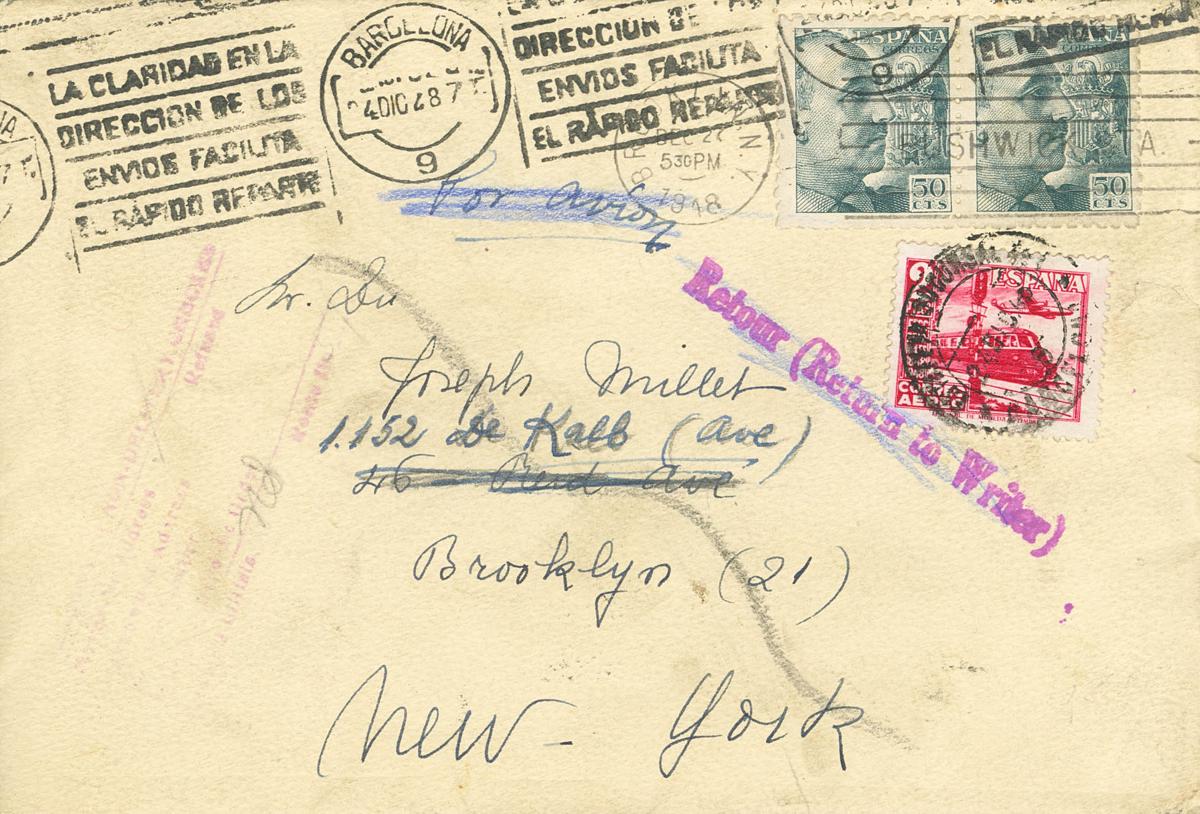 LA CLARIDAD EN LA
DIRECCION DE LOS
ENVIOS FACILITA
EL RÁPIDO REPARTO
BARCELONA
24 DIC 48 7
9
DIRECCION DE
ENVIOS FACILITA
EL RÁPIDO REPARTO
DEC 27
530PM
1948
BUSHWICK STA.
ESPAÑA
CORREOS
50
CTS
ESPAÑA
CORREOS
50
CTS
EL RÁPIDO REPARTO
Por avion
2
ESPAÑA
CORREO
AEREO
Retour (Return to Writer)
Sr. Dn
Joseph Millet
1.152 de Kalb (Ave)
46 Reid Ave
Brooklyn (21)
New-York
Refused